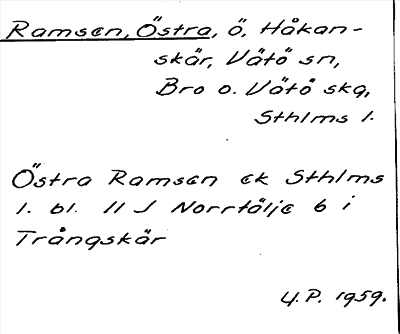 Ramsen, Östra, ö, Håkan-
skär, Vätö sn,
Bro o. Vätö skg,
Sthlms l.
Östra Ramsen ek Sthlms
l. bl. 11 J Norrtälje 6 i
Trångskär
U.P. 1959.